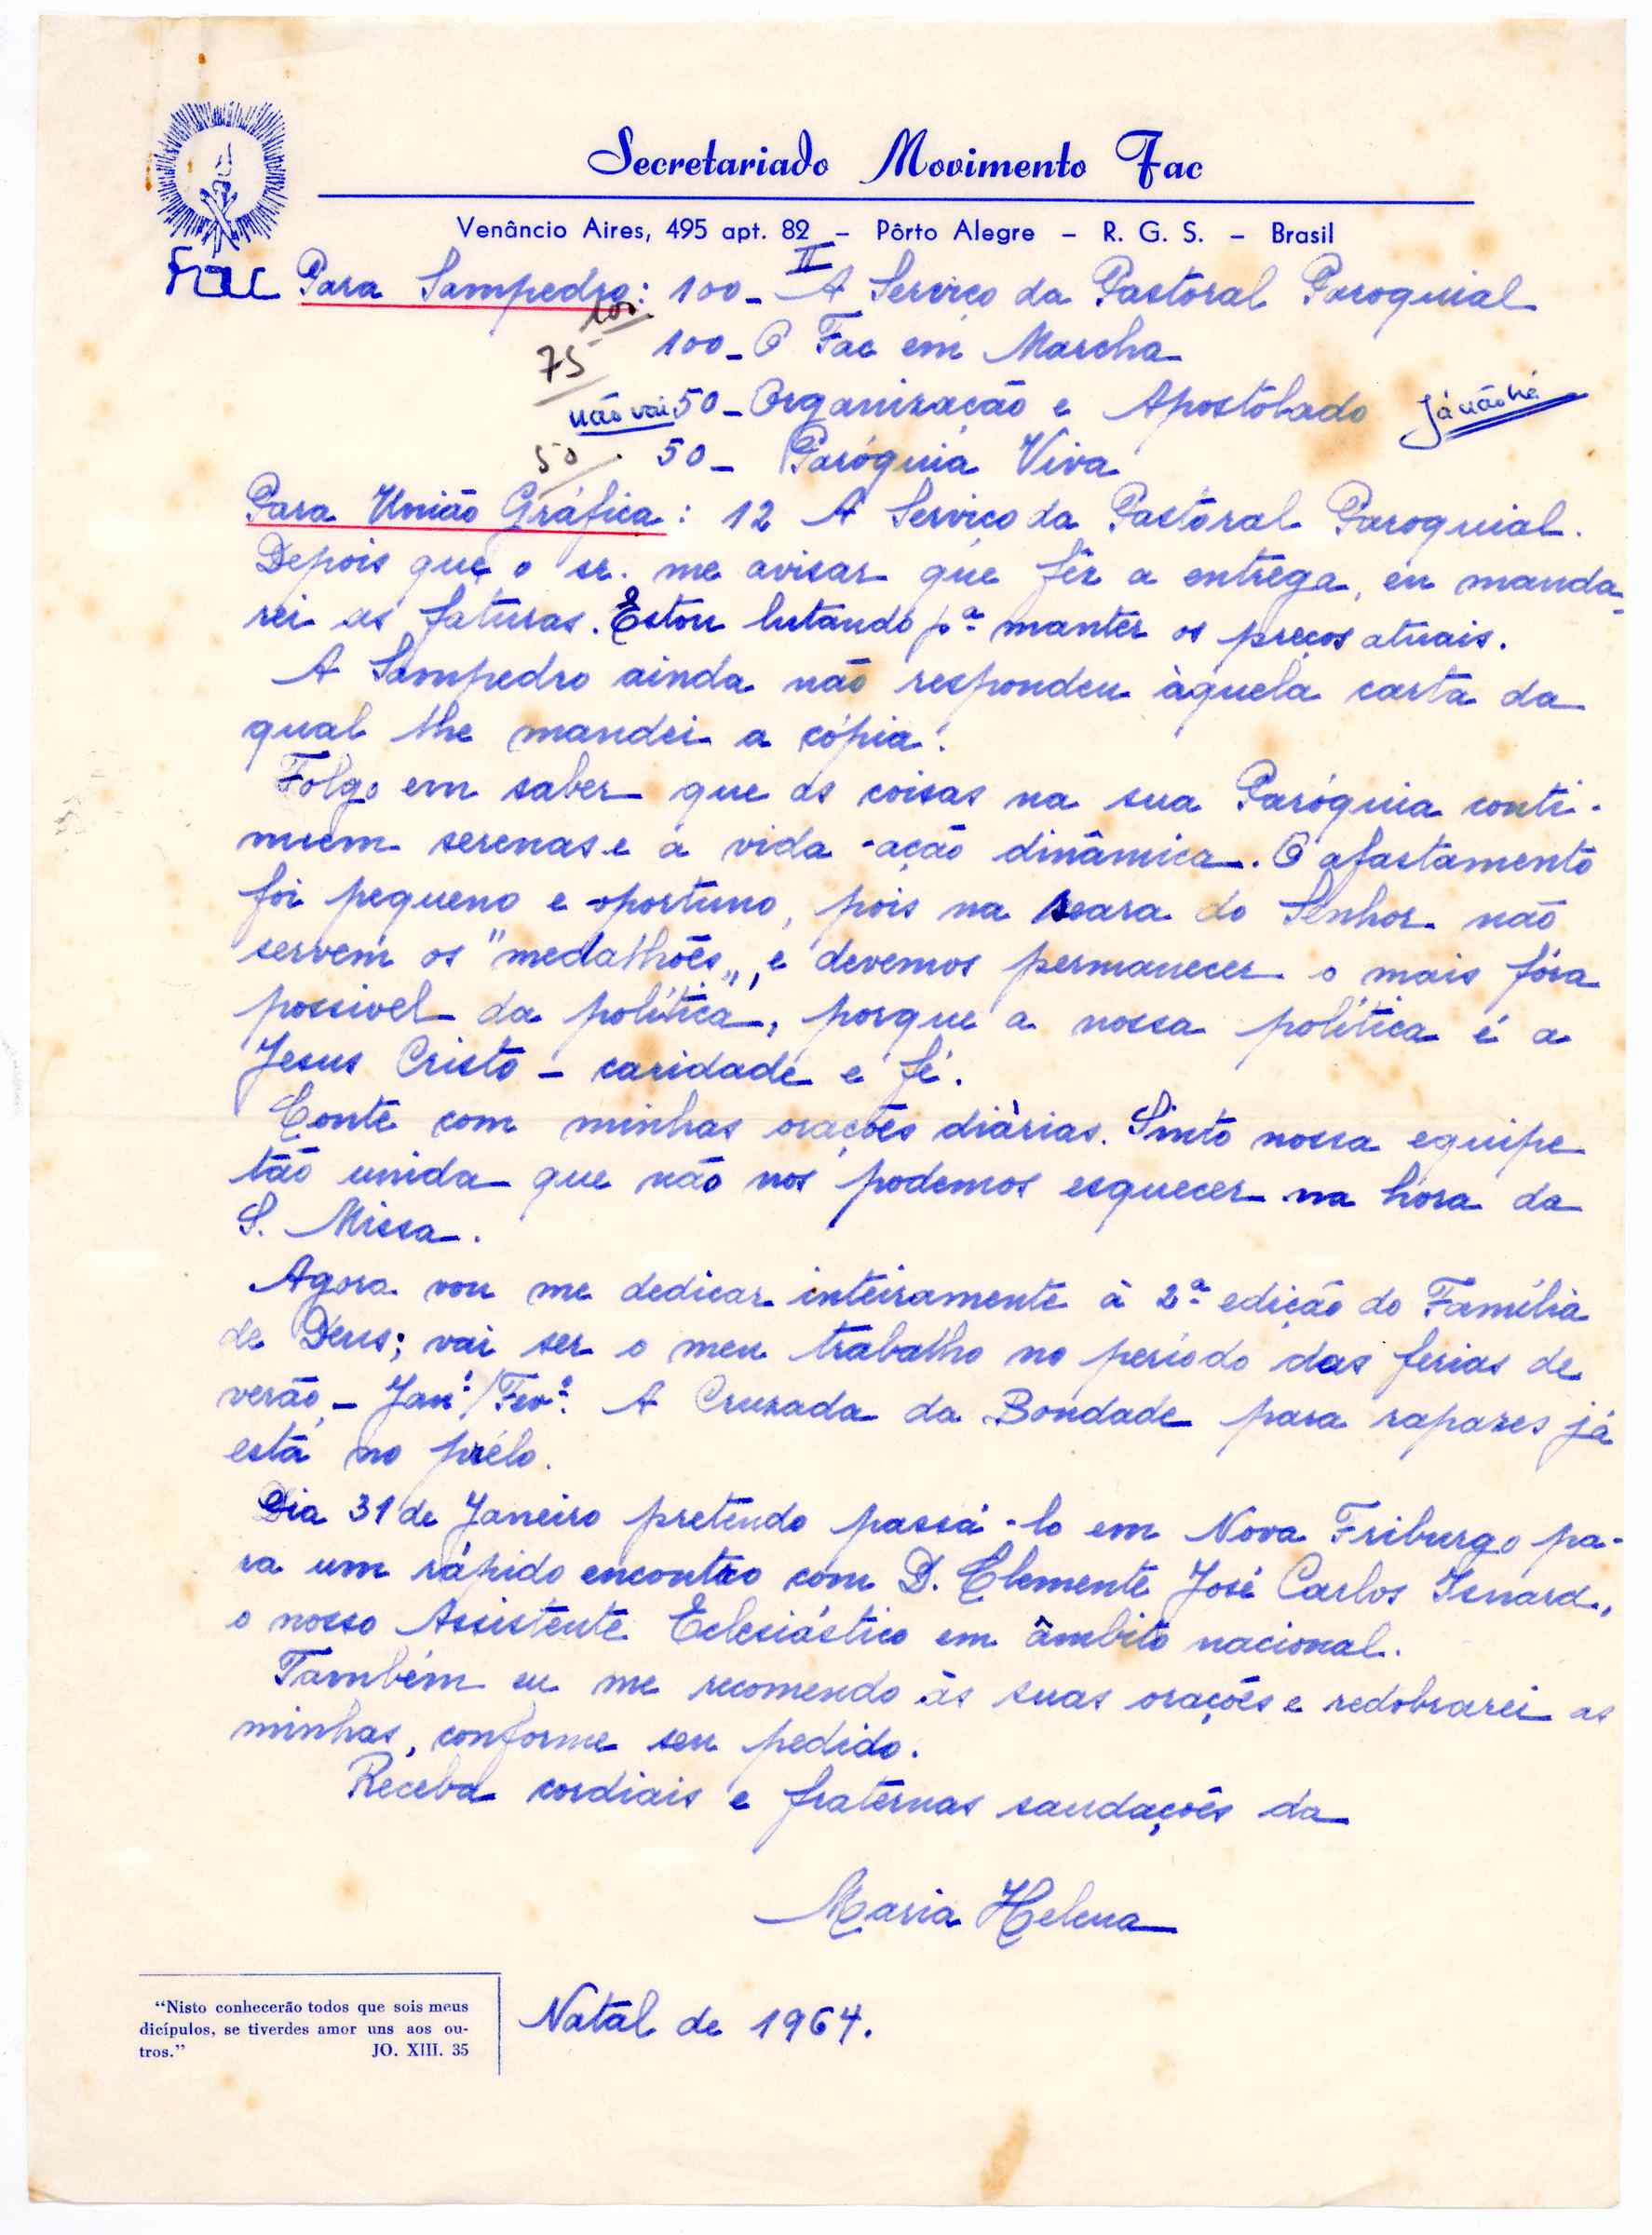 Secretariado Movimento Fac
Venâncio Aires, 495 apt. 82 – Pôrto Alegre – R. G. S. – Brasil
Fac
II
Para Sampedro: 100 - A Serviço da Pastoral Paroquial
100
100 - O Fac em Marcha
75
não vai 50 - Organização e Apostolado Já não há
50 50 - Paróquia Viva
Para União Gráfica: 12 A Serviço da Pastoral Paroquial.
Depois que o sr. me avisar que fêz a entrega, eu manda-
rei as faturas. Estou lutando pª manter os preços atuais.
A Sampedro ainda não respondeu àquela carta da
qual lhe mandei a cópia.
Folgo em saber que as coisas na sua Paróquia conti-
nuem serenas e a vida-ação dinâmica. O afastamento
foi pequeno e oportuno, pois na seara do Senhor não
servem os "medalhões", e devemos permanecer o mais fóra
possivel da política, porque a nossa política é a
Jesus Cristo - caridade e fé.
Conte com minhas orações diàrias. Sinto nossa equipe
tão unida que não nos podemos esquecer na hora da
S. Missa.
Agora vou me dedicar inteiramente à 2ª edição do Família
de Deus; vai ser o meu trabalho no período das ferias de
verão - Janº/Fevº. A Cruzada da Bondade para rapazes já
está no prélo.
Dia 31 de Janeiro pretendo passá-lo em Nova Friburgo pa-
ra um rápido encontro com D. Clemente José Carlos Isnard,
o nosso Assistente Eclesiástico em âmbito nacional.
Também eu me recomendo às suas orações e redobrarei as
minhas, conforme seu pedido.
Receba cordiais e fraternas saudações da
Maria Helena
"Nisto conhecerão todos que sois meus
dicípulos, se tiverdes amor uns aos ou-
tros." JO. XIII. 35
Natal de 1964.